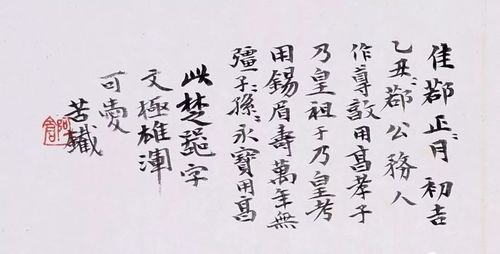 佳鄀正二月初吉
乙丑鄀公務人
作尊𣪘用亯孝于
乃皇祖于乃皇考
用錫眉壽萬年無
彊子〻孫〻永寶用亯
此楚器字
文極雄渾
可愛
苦鐵